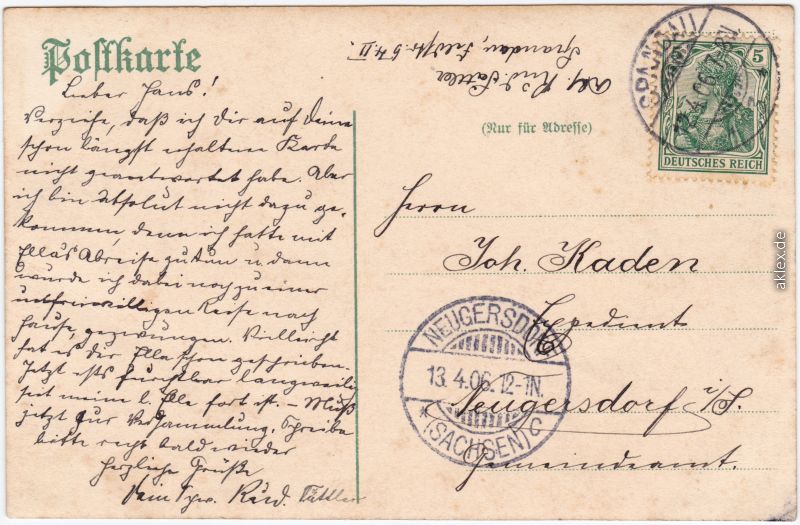 Postkarte
Lieber Hans!
Verzeihe, daß ich Dir auf Deine
schon längst erhaltene Karte
nicht geantwortet habe. Aber
ich bin absolut nicht dazu ge-
kommen, denn ich hatte mit
Ella's Abreise zu tun u. dann
wurde ich dabei noch zu einer
unfreiwilligen Reise nach
Hause, gezwungen. Vielleicht
hat es dir Ella schon geschrieben.
Jetzt ists furchtbar langweilig
seit meine l. Elle fort ist. – Muß
jetzt zur Versammlung. Schreibe
bitte recht bald wieder
Herzliche Grüße
Dein Rud.
Abs. Rud.
Spandau, Feldstr. 54 II.
SPANDAU
5
DEUTSCHES REICH
(Nur für Adresse)
Herrn
Joh. Kaden
Expedient
Neugersdorf i/S.
Gemeindeamt.
NEUGERSDORF
13.4.06.12-1N.
*(SACHSEN)C
aklex.de